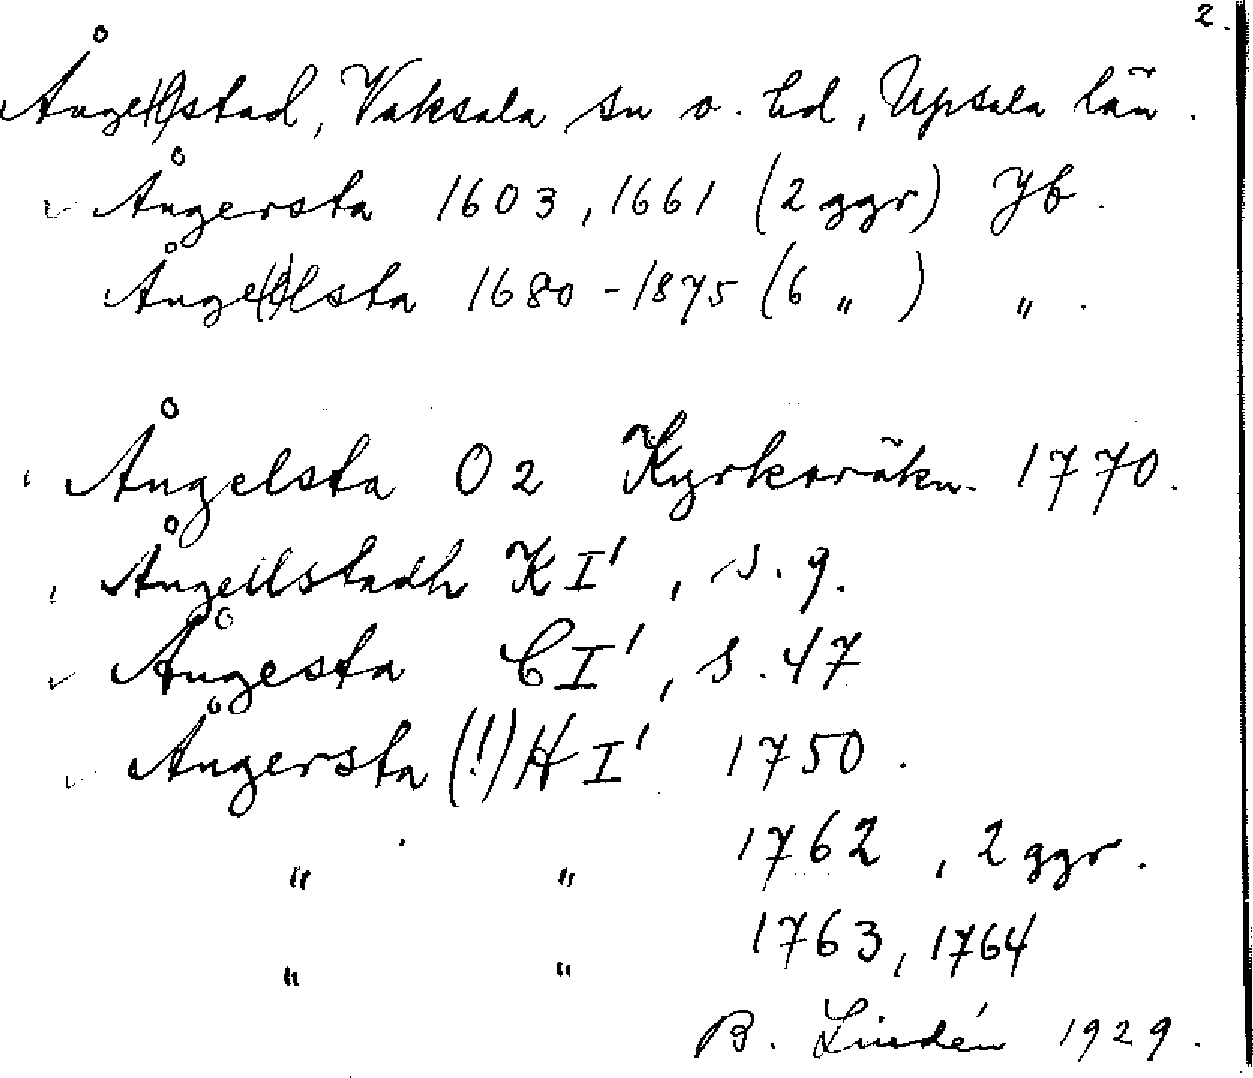 2.
Ångel(l)stad, Vaksala sn o. hd, Upsala län.
Ångersta 1603, 1661 (2 ggr) Jb.
Ånge(l)lsta 1680-1875 (6 " ) " .
Ångelsta O2 Kyrkoräkn. 1770.
Ångellstadh KI', s. 9.
Ångesta CI', s. 47
Ångersta (!) HI' 1750.
" " 1762, 2 ggr.
" " 1763, 1764
B. Lindén 1929.